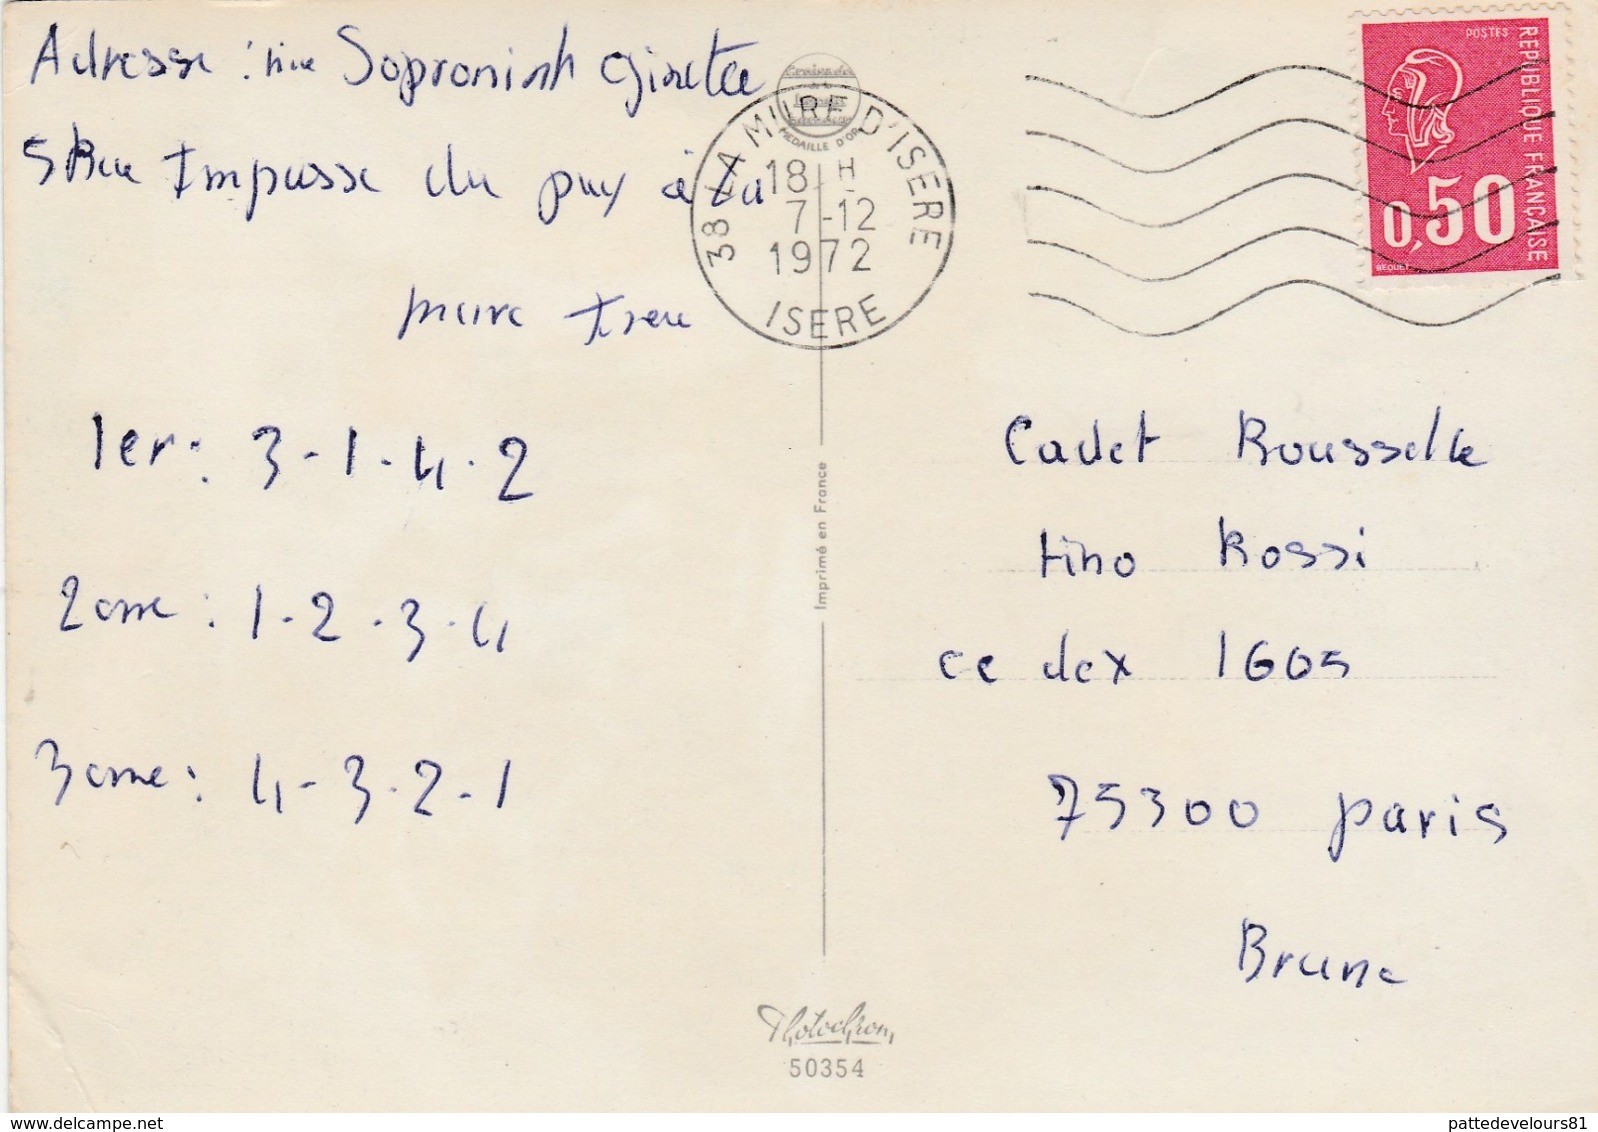 Adresse : Mme Sopronink Ginette
5 Rue Impasse du puy à La
mure tsere
1er : 3-1-4-2
2eme : 1-2-3-4
3eme : 4-3-2-1
MEDAILLE D'OR
38 LA MURE D'ISERE
18 H
7-12
1972
ISERE
POSTES
REPUBLIQUE FRANÇAISE
0,50
BEQUET
Imprimé en France
Cadet Rousselle
tino Rossi
ce dex 1605
75300 paris
Brune
Photochrom
50354
delcampe.net
pattedevelours81